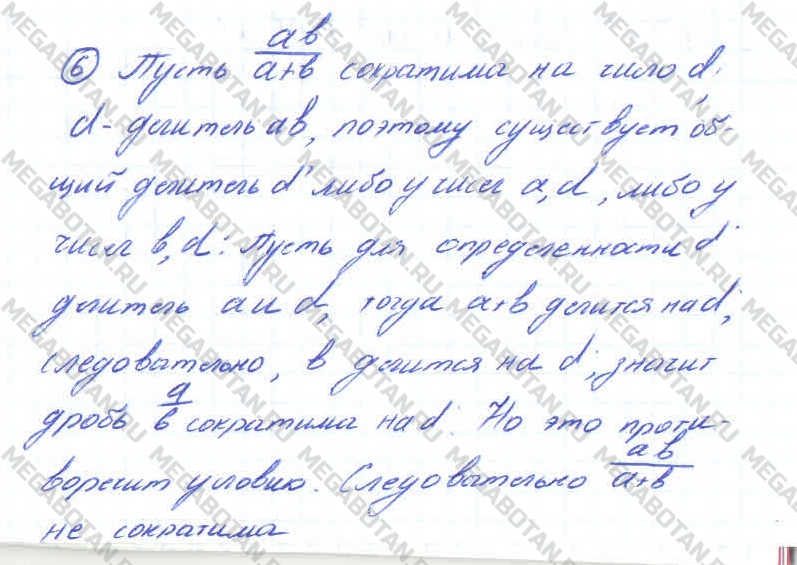 ⑥ Пусть ab/a+b сократима на число d.
d - делитель ab, поэтому существует об-
щий делитель d' либо у чисел a, d, либо у
чисел b, d. Пусть для определенности d'
делитель a и d, тогда a+b делится на d',
следовательно, b делится на d', значит
дробь a/b сократима на d'. Но это проти-
воречит условию. Следовательно ab/a+b
не сократима
MEGABOTAN.RU